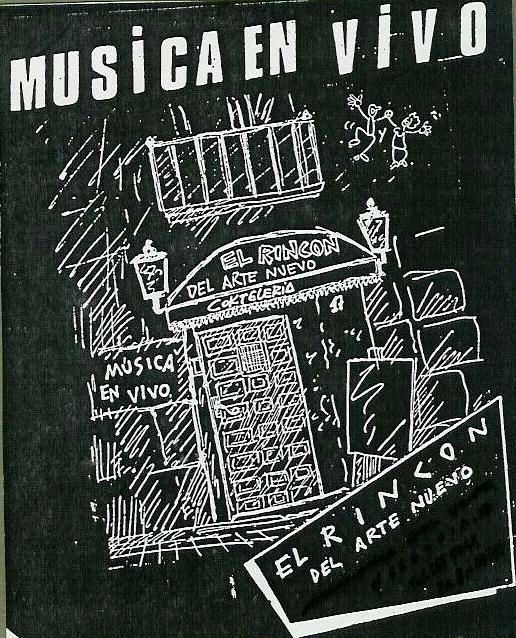 MUSiCA EN ViVO
EL RINCON
DEL ARTE NUEVO
COKTELERIA
MÚSICA
EN VIVO
EL RINCON
DEL ARTE NUEVO